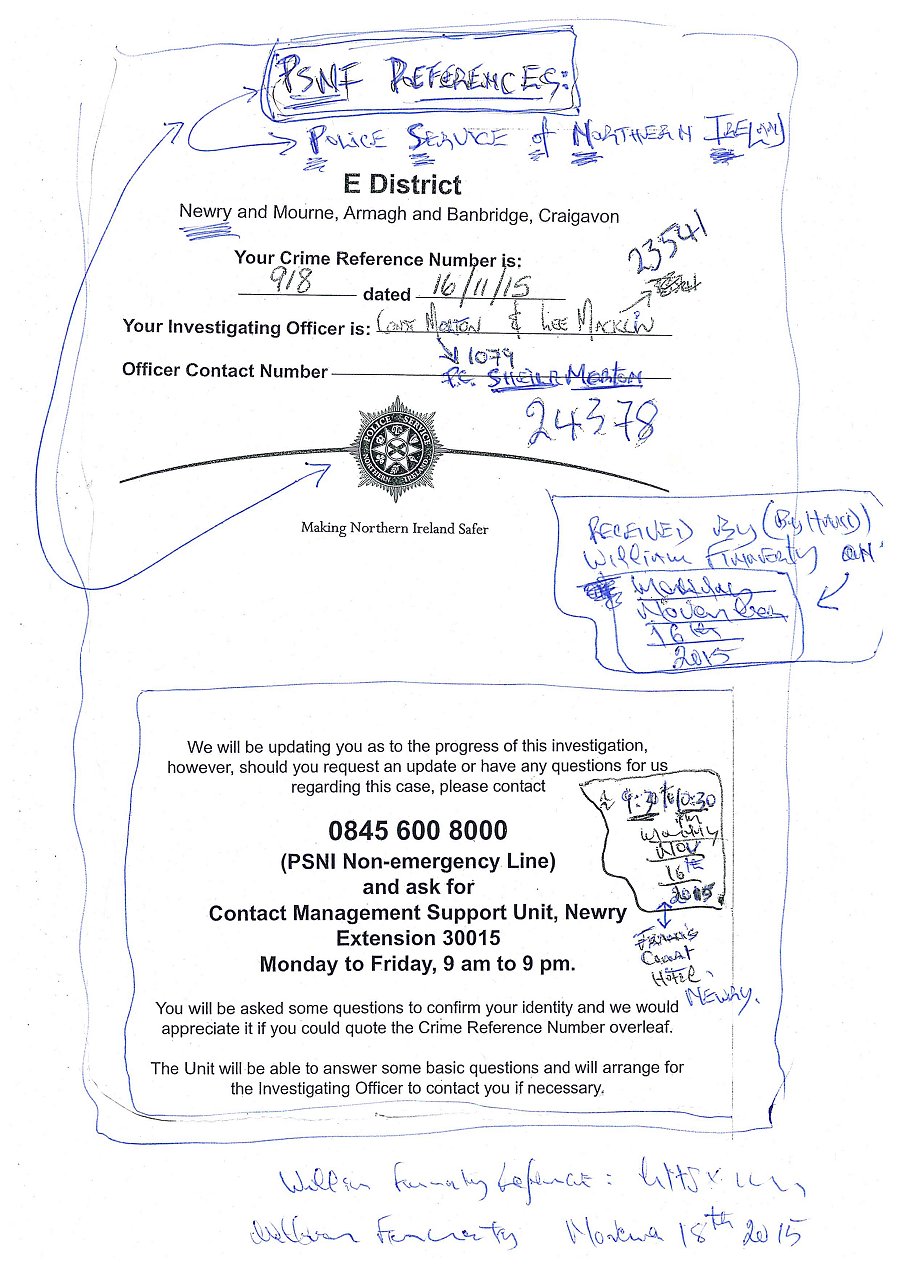 PSNI REFERENCES:
POLICE SERVICE of NORTHERN IRELAND
E District
Newry and Mourne, Armagh and Banbridge, Craigavon
23541
Your Crime Reference Number is:
918 dated 16/11/15
Your Investigating Officer is: Const MORTON & LEE MACKLIN
1079
Officer Contact Number P.C. SHEILA MORTON
24378
POLICE SERVICE
NORTHERN IRELAND
Making Northern Ireland Safer
RECEIVED By (By HAND)
William FINNERTY ON
Monday
November
16th
2015
We will be updating you as to the progress of this investigation,
however, should you request an update or have any questions for us
regarding this case, please contact
9:30 to 10:30
pm
Monday
NOV
16th
2015
0845 600 8000
(PSNI Non-emergency Line)
and ask for
Contact Management Support Unit, Newry
Extension 30015
Monday to Friday, 9 am to 9 pm.
Canal
HOTEL,
NEWRY.
You will be asked some questions to confirm your identity and we would
appreciate it if you could quote the Crime Reference Number overleaf.
The Unit will be able to answer some basic questions and will arrange for
the Investigating Officer to contact you if necessary.
William Finnerty reference:
William Finnerty 18th 2015